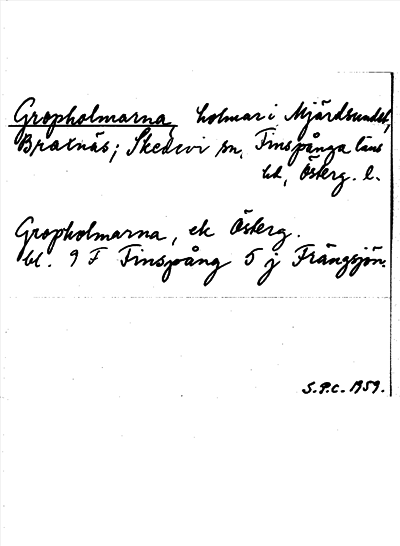 Gropholmarna, holmar i Mjärdsundet,
Bratnäs; Skedevi sn, Finspånga läns
hd, Österg. l.
Gropholmarna, ek Österg.
bl. 9 F Finspång 5 j Frängsjön.
S.P.C. 1959.